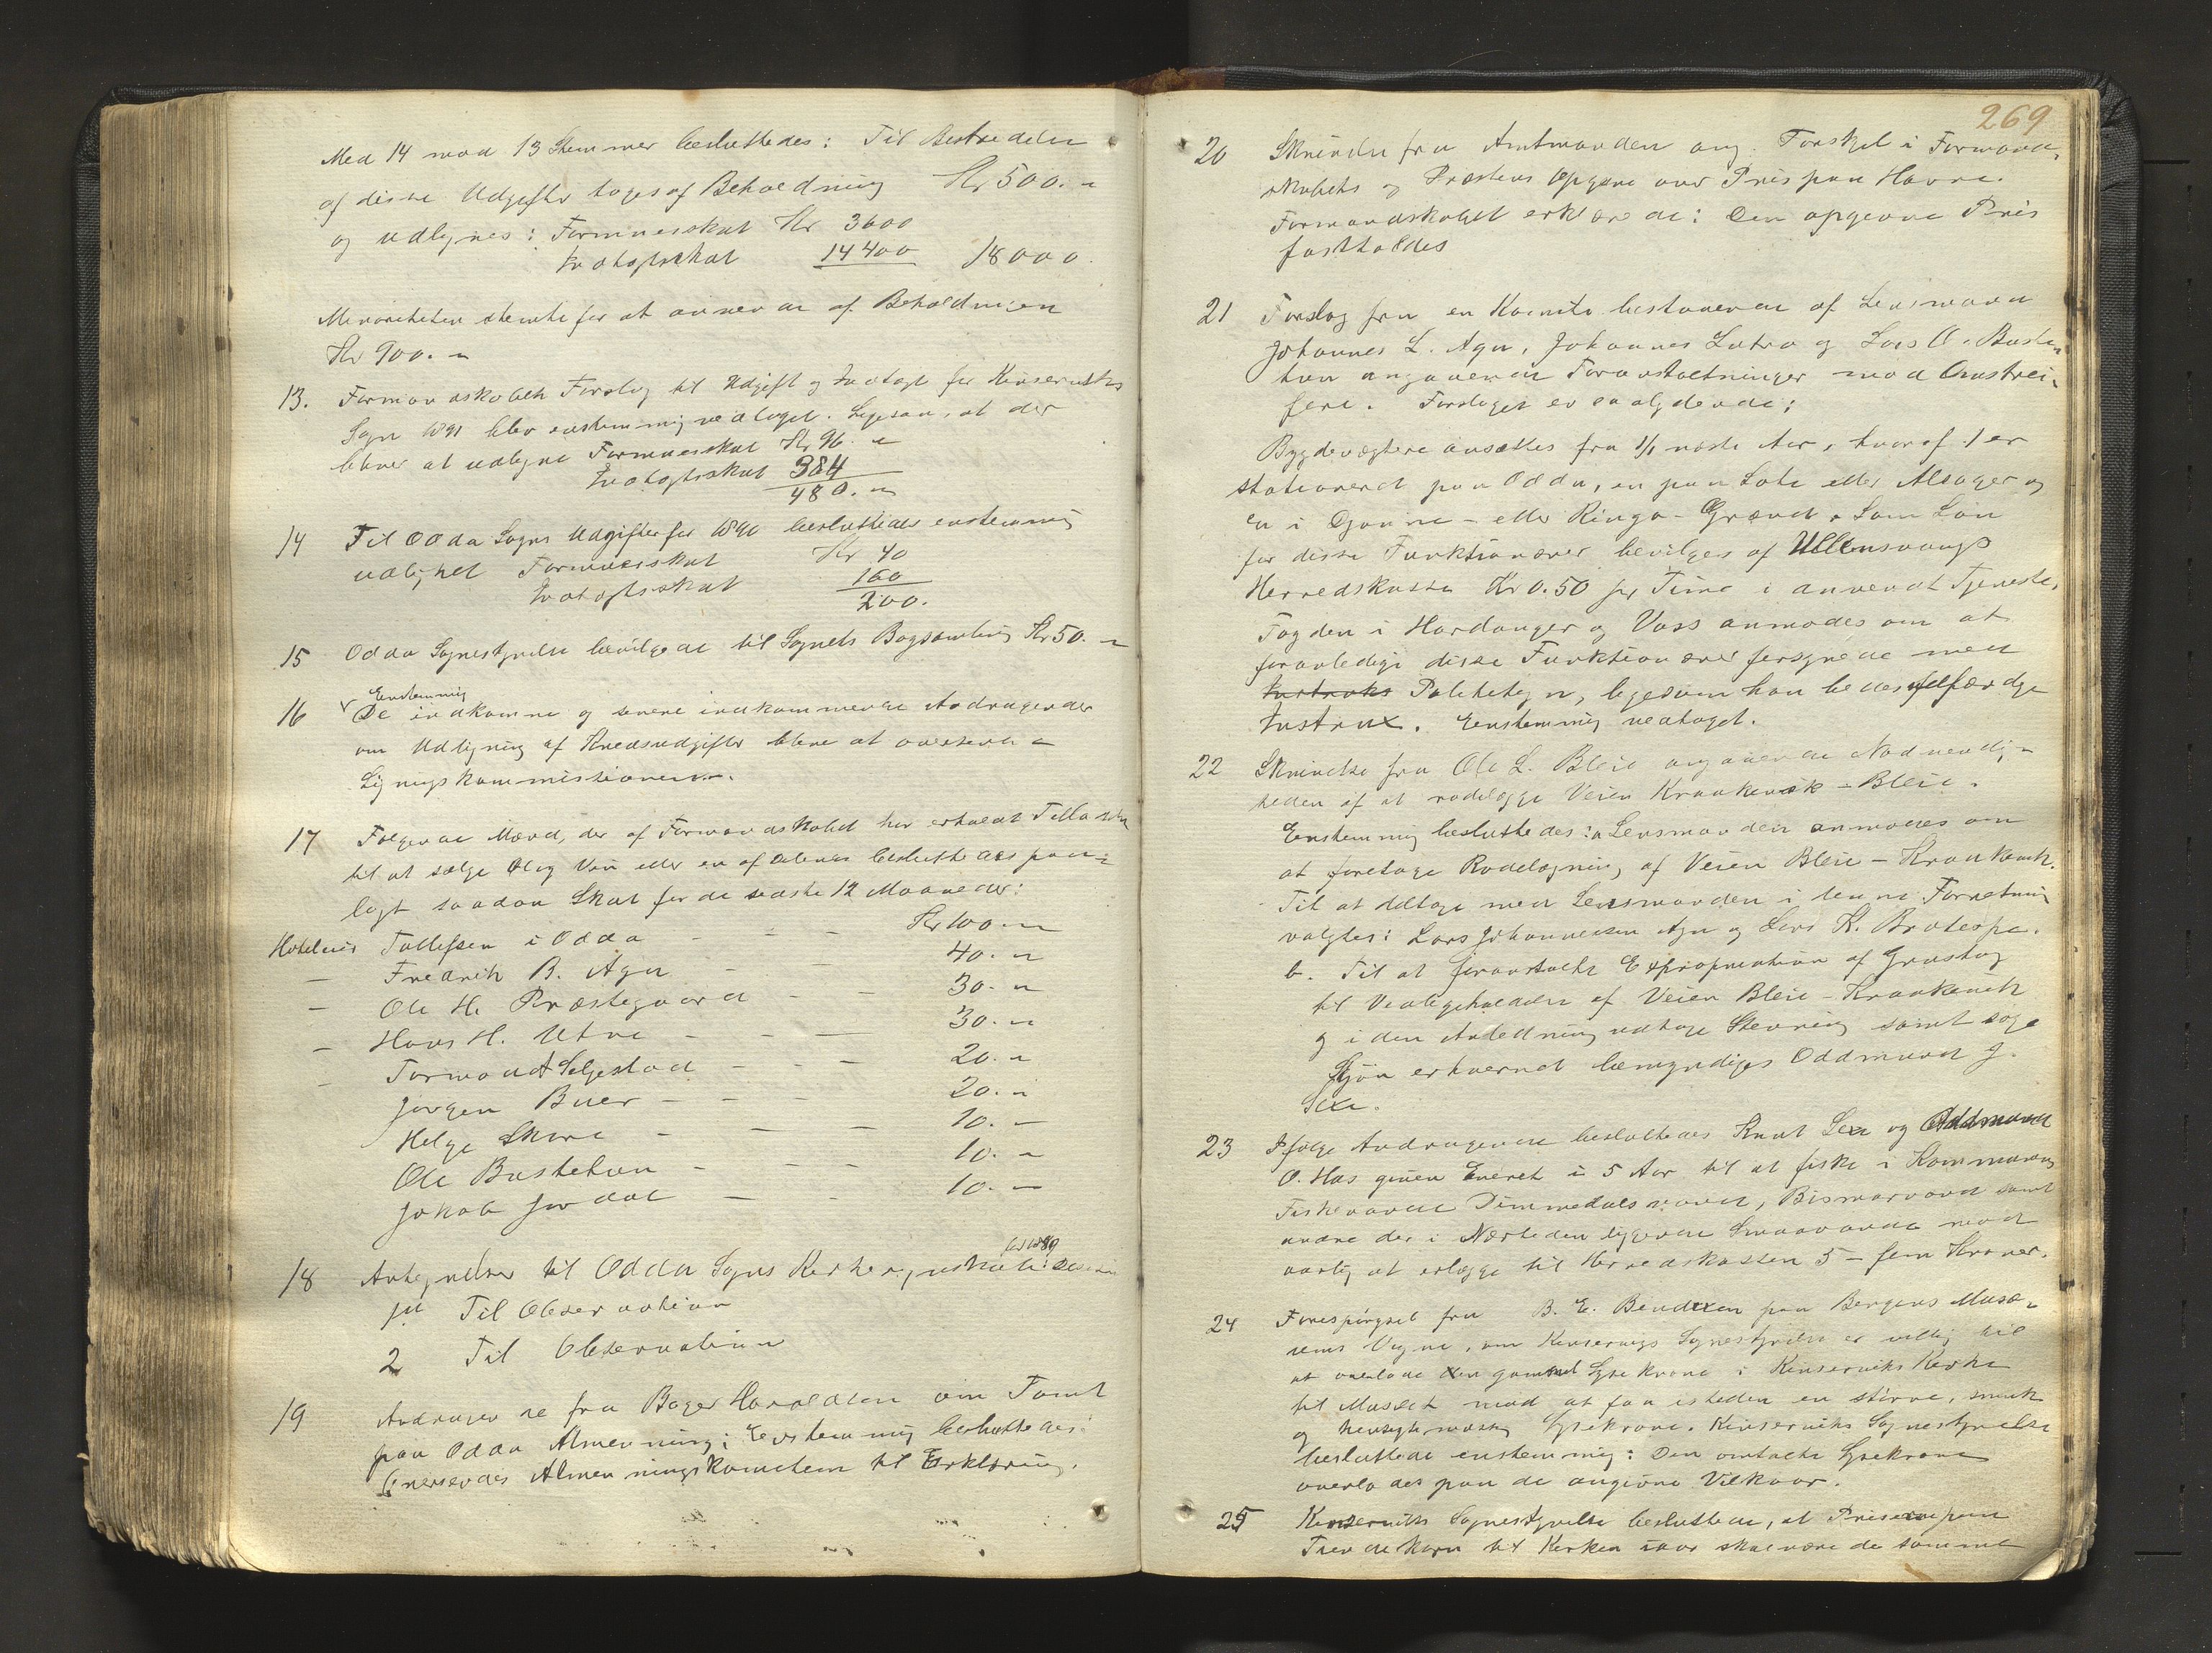 Med 14 mod 13 Stemmer besluttedes: Til Bestridelse
af disse Udgifter tages af Beholdning Kr 500.-
og udlignes: Formuesskat Kr 3600
Indtægtsskat 14400 18000.
Minoriteten stemte for at anvende af Beholdningen
Kr 900.-
13. Formandskabets Forslag til Udgift og Indtægt for Kinserviks
Sogn 1891 blev enstemmig vedtaget. Ligesaa, at der
bliver at udligne Formuesskat Kr 96.-
Indtægtsskat 384
480.-
14 Til Odda Sogns Udgifter for 1890 besluttedes enstemmig
udlignet Formuesskat Kr 40
Indtægtsskat 160
200.
15 Odda Sognestyrelse bevilgede til Sognets Bogsamling Kr 50.-
Enstemmig
16 De indkomne og senere indkommende Andragender
om Udligning af Kredsudgifter blive at oversende
Ligningskommissionen.
17 Følgende Mænd, der af Formandskabet har erholdt Tilladelse
til at sælge Øl og Vin eller en af delene besluttedes paa-
lagt saadan Skat for de sidste 12 Maaneder:
Hoteleier Tollefsen i Odda - - - Kr 100.-
— Fredrik B. Aga - - 40.-
- Ole H. Præstegaard - - 30.-
- Hans H. Utne - - - 30.-
- Tormod A Seljestad - - - 20.-
Jørgen Buer - - - 20.-
Helge Skare - - - 10.-
Ole Bustetun - - - 10.-
Jakob Jordal - - 10.-
18 Antegnelser til Odda Sogns Kirkeregnskab for 1889:
Til Observation
2 Til Observation
19 Andragende fra Bager Haraldsen om Tomt
paa Odda Almenning; Enstemmig besluttedes:
Oversendes Almenningskomiteen til Erklæring.
269
20 Skrivelse fra Amtmanden ang. Forskjel i Formand-
skabets og Præstens Opgave over Pris paa Havre.
Formandskabet erklærede: Den opgivne Pris
fastholdes
21 Forslag fra en Komite bestaaende af Lensmand
Johannes L. Aga, Johannes Lutro og Lars O. Buste-
tun angaaende Foranstaltninger mod Omstrei-
fere. Forslaget er saalydende:
Bygdevægtere ansættes fra 1/1 næste Aar, hvoraf 1 er
stationeret paa Odda, en paa Lote eller Alsager og
en i Djønne- eller Ringø-Grænd. Som Løn
for disse Funktionærer bevilges af Ullensvangs
Herredskasse Kr 0.50 pr Time i anvendt Tjeneste.
Fogden i Hardanger og Voss anmodes om at
foranledige disse Funktionærer forsynede med
Instruks Polititegn, ligesom han bedes udfærdige
Instrux. Eenstemmig vedtaget.
22 Skrivelse fra Ole L. Bleie angaaende Nødvendig-
heden af at rodelægge Veien Kraakevik - Bleie.
Enstemmig besluttedes: a Lensmanden anmodes om
at foretage Rodelægning af Veien Bleie - Kraakevik.
Til at deltage med Lensmanden i denne Forretning
valgtes: Lars Johannesen Aga og Lars K. Bratespe.
b. Til at foranstalte Expropriation af Grustag
til Vedligeholdelse af Veien Bleie - Kraakevik
og i den Anledning udtage Stevning samt søge
Skjøn erhvervet bemyndiges Oddmund J.
Sexe.
23 Ifølge Andragende besluttedes Knut Sexe og Oddmund
O. Hus given Eneret i 5 Aar til at fiske i Kommunens
Fiskevande Dimmedalsvand, Bismarvand samt
andre der i Nærheden liggende Smaavande mod
aarlig at erlægge til Herredskassen 5 - fem Kroner.
24 Forespørgsel fra B. E. Bendixen paa Bergens Muse-
ums Vegne, om Kinserviks Sognestyrelse er villig til
at overlade den gamle Lysekrone i Kinserviks Kirke
til Museet mod at faa isteden en større, smuk
og hensigtsmæssig Lysekrone. Kinserviks Sognestyrelse
besluttede enstemmig: Den omtalte Lysekrone
overlades paa de angivne Vilkaar.
25 Kinserviks Sognestyrelse besluttede, at Priserne paa
Tiendekorn til Kirken iaar skal være de samme